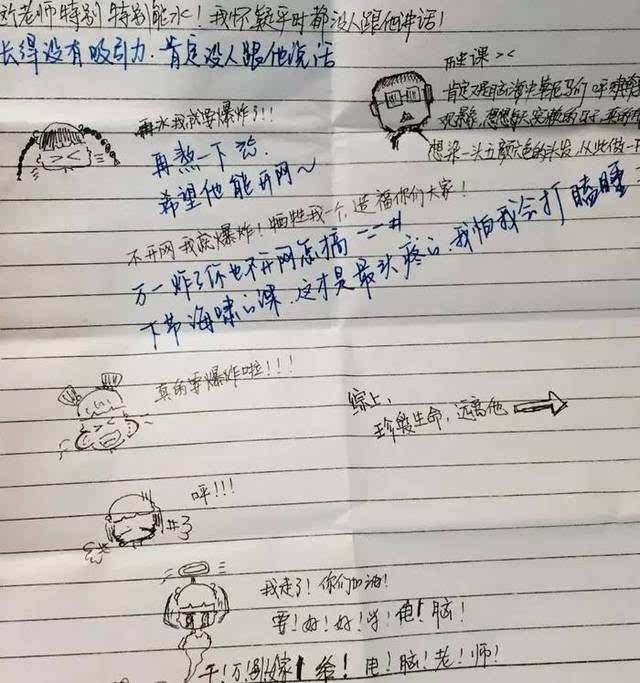 老师特别特别能水！我怀疑平时都没人跟他讲话！
长得没有吸引力，肯定没人跟他说话
历史课 ><
再水我就要爆炸了!!!
再熬一下
希望他能开网～
想染一头五颜六色的头发，从此做一
不开网我就爆炸！牺牲我一个，造福你们大家！
万一炸了你也不开网怎搞
下节海啸的课，这才是最头疼的，我怕我会打瞌睡
真的要爆炸啦!!!
综上，
珍爱生命，远离他
呯!!!
我走了！你们加油！
要！好！好！学！电！脑！
千！万！别！嫁！给！电！脑！老！师！